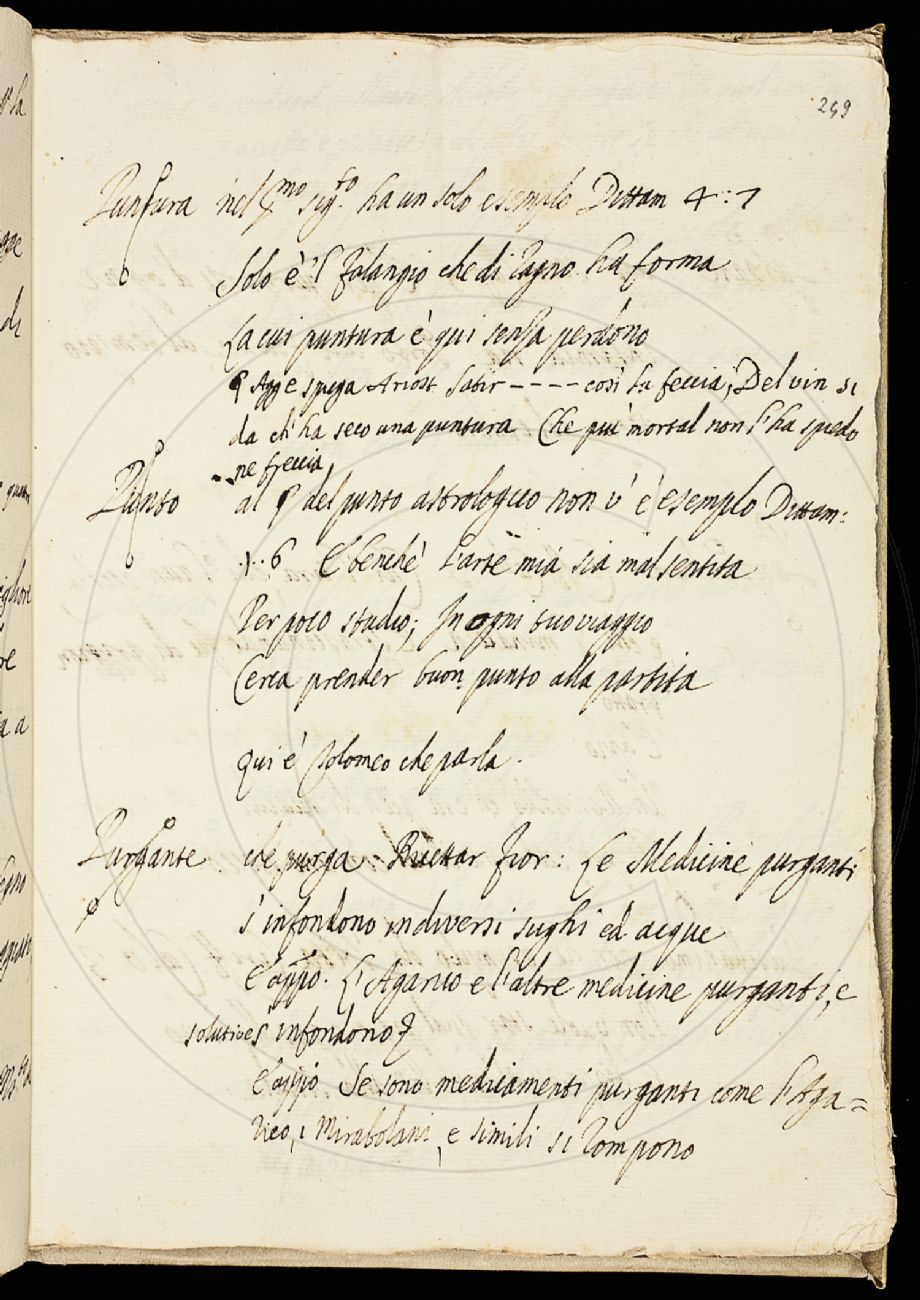 249
Puntura nel pmo sigto. ha un solo esempio Dittam 4:7
Solo è 'l Falangio che di ragno ha forma
La cui puntura è qui senza perdono
§ Agg e spega Ariost Satir ---- così la feccia, Del vin si
da ch' ha seco una puntura Che più mortal non l' ha spiedo
ne freccia
Punto al § del punto astrologico non v' è esempio Dittam:
1..6 E benchè l'arte mia sia mal sentita
Per poco studio; In ogni suo viaggio
Cerca prender buon punto alla partita
qui è Tolomeo che parla.
Purgante che purga: Ricettar Fior: Le Medicine purganti
s'infondono in diversi sughi ed acque
E appo. L'Agarico e l'altre medicine purganti, e
solutive s'infondono
E appo Se sono medicamenti purganti come l'Aga=
rico, i Mirabolani, e simili si rompono